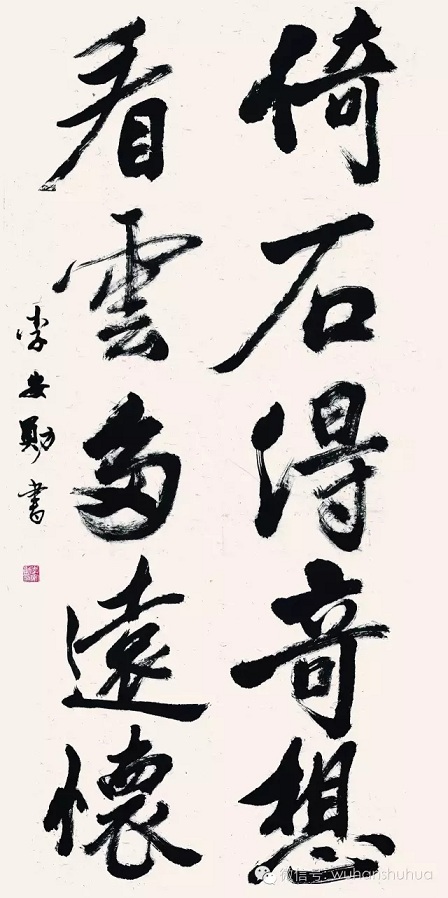 倚石得奇想
看雲多遠懷
李安勛書
微信号: wuhanshuhua